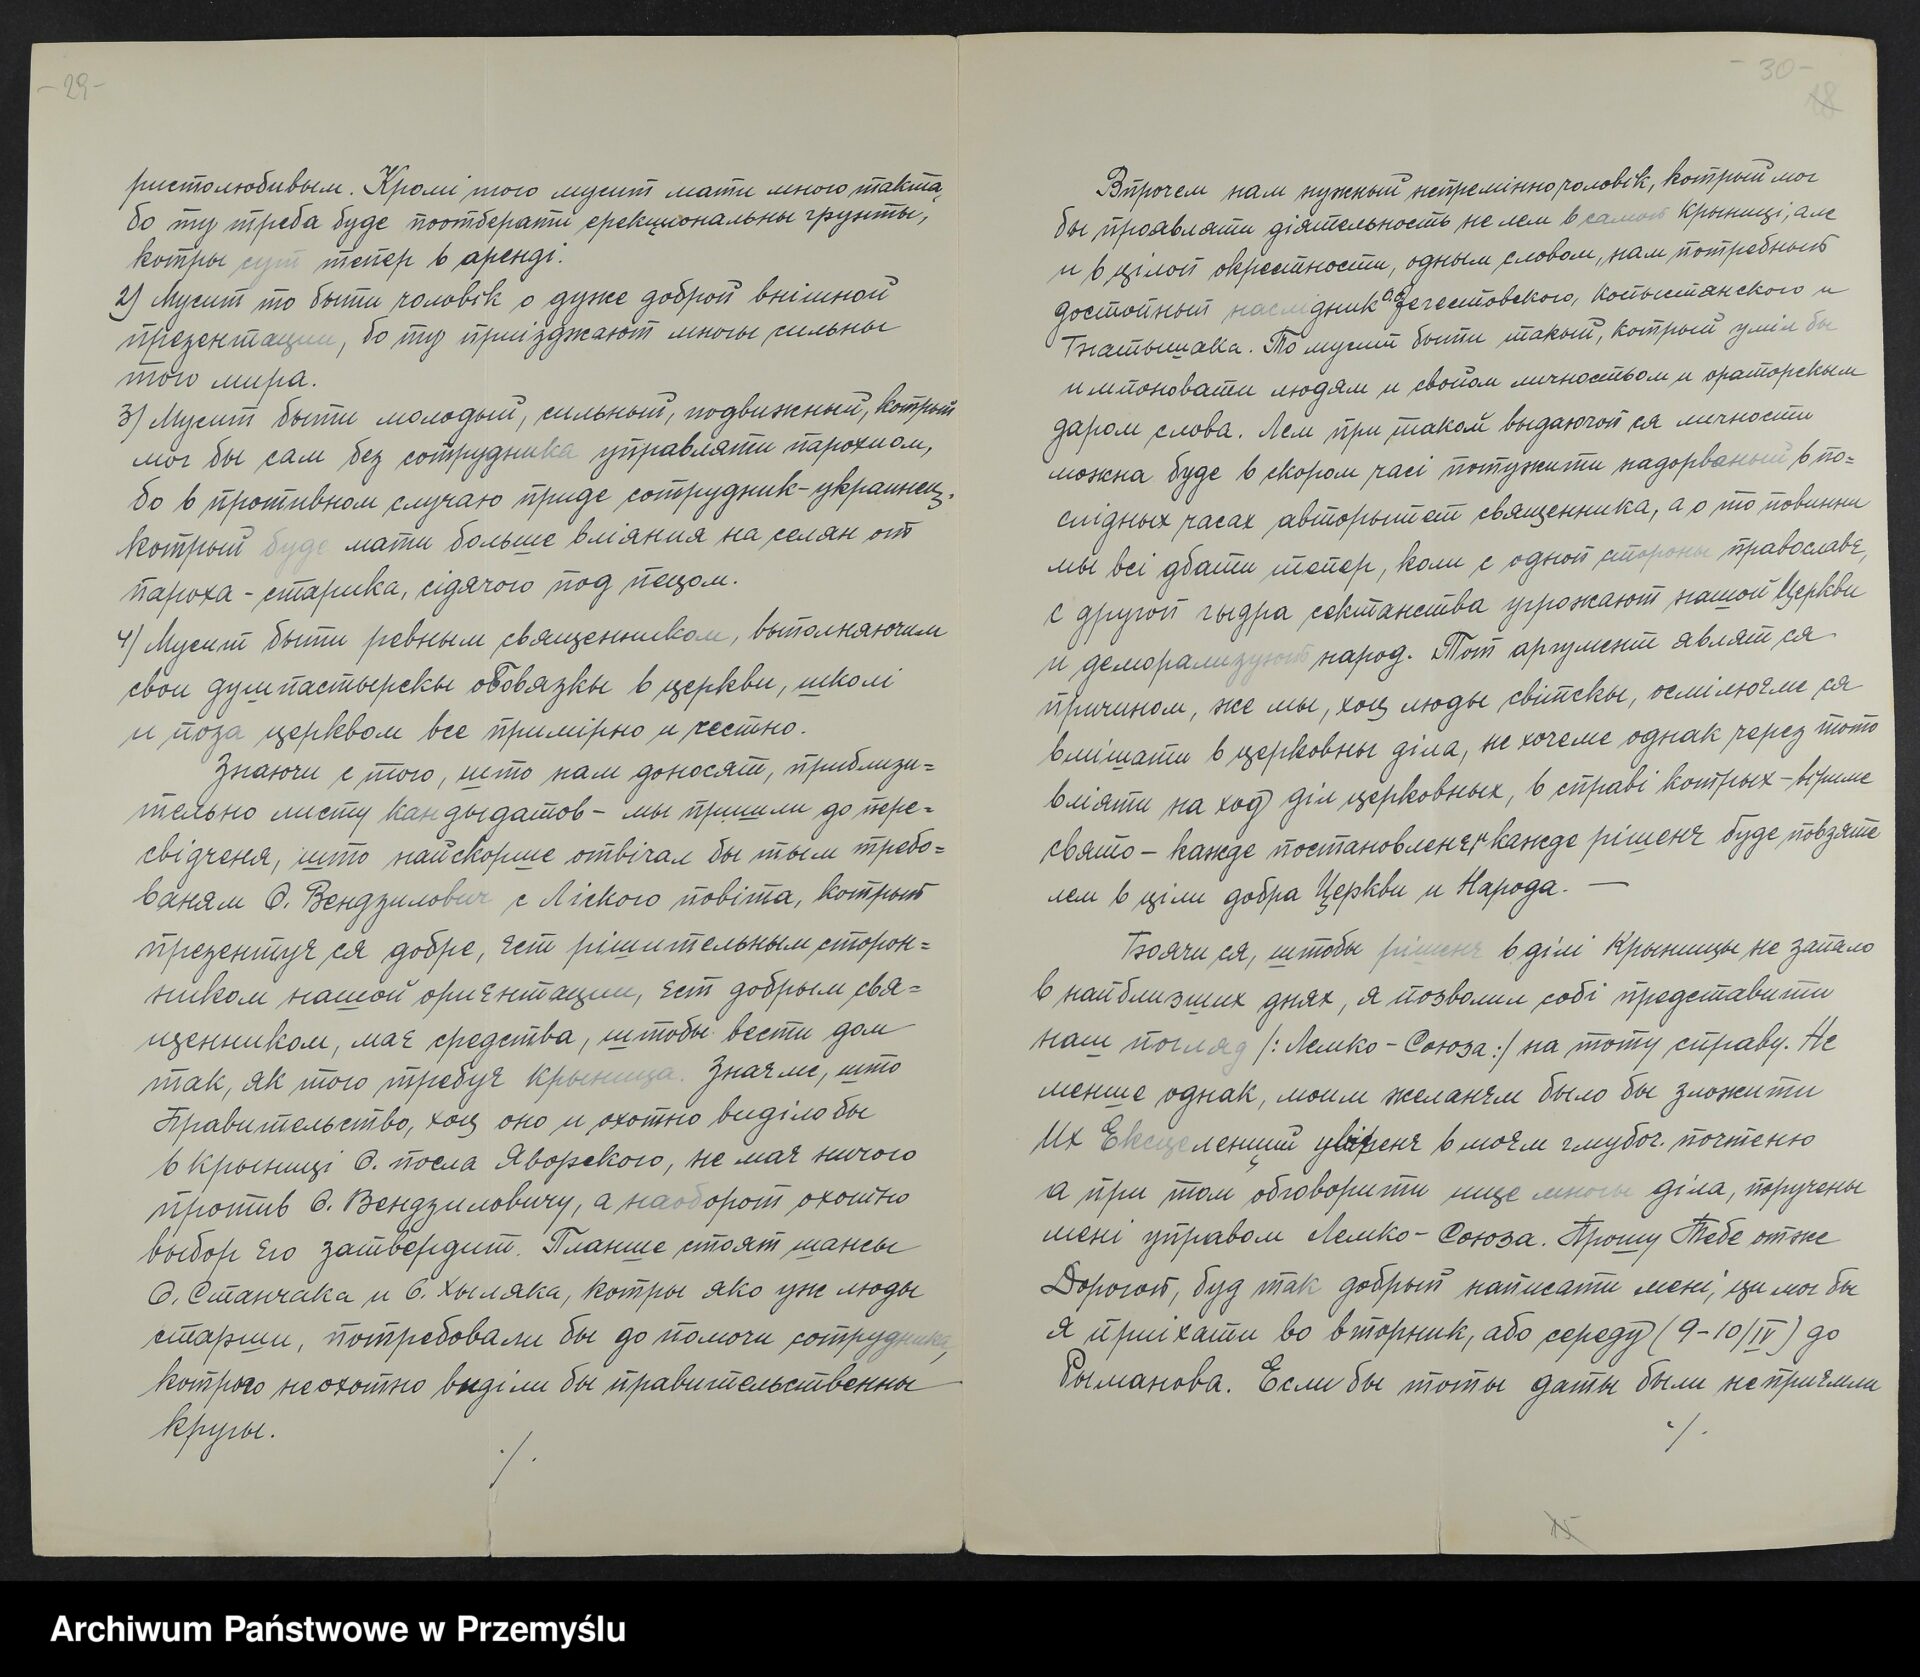 - 29 -
ристолюбивым. Кромі того мусит мати много такта,
бо ту треба буде поотберати ерекциональны грунты,
котры сут тепер в аренді.
2) Мусит то быти чоловік о дуже доброй внішной
презентации, бо ту приізджают многы сильны
того мира.
3) Мусит быти молодый, сильный, подвижный, котрый
мог бы сам без сотрудника управляти парохиом,
бо в противном случаю приде сотрудник-украинец,
котрый буде мати больше вліяния на селян от
пароха - старика, сідячого под пецом.
4) Мусит быти ревным священником, выполняючим
свои душпастырскы обовязкы в церкви, школі
и поза церквом все примірно и честно.
Знаючи с того, што нам доносят, приблизи=
тельно листу кандыдатов - мы пришли до пере=
свідченя, што найскорше отвічал бы тым требо=
ваням О. Вендзилович с Ліского повіта, котрый
презентує ся добре, єст рішительным сторон=
ником нашой ориєнтации, єст добрым свя=
щенником, має средства, штобы вести дом
так, як того требує Крыница. Знаєме, што
Правительство, хоц оно и охотно виділо бы
в Крыниці О. посла Яворского, не має ничого
против О. Вендзиловичу, а наоборот охотно
выбор єго затвердит. Планше стоят шансы
О. Станчака и О. Хыляка, котры яко уж люды
старши, потребовали бы до помочи сотрудника,
котрого неохотно виділи бы правительственны
кругы.
./.
- 30 -
18
Впрочем нам нужный непремінно чоловік, котрый мог
бы проявляти діятельность не лем в самой Крыниці, але
и в цілой окрестности, одным словом, нам потребный
достойный наслідник о.о. Зегестовского, Копыстянского и
Гнатышака. То мусит быти такый, котрый уміл бы
импоновати людям и свойом личностьом и ораторскым
даром слова. Лем при такой выдаючой ся личности
можна буде в скором часі потужити надорваный в по=
слідных часах авторытет священника, а о то повинни
мы всі дбати тепер, коли с одной стороны православє,
с другой гыдра сектанства угрожают нашой Церкви
и деморализуют народ. Тот аргумент являт ся
причином, же мы, хоц люды світскы, осмілюєме ся
вмішати в церковны діла, не хочеме однак через тото
вліяти на ход діл церковных, в справі котрых - віриме
свято - кажде постановленє и кажде рішенє буде повзяте
лем в ціли добра Церкви и Народа. —
Боячи ся, штобы рішенє в ділі Крыницы не запало
в найблизших днях, я позволил собі представити
наш погляд /: Лемко - Союза :/ на тоту справу. Не
менше однак, моим желанєм было бы зложити
Их Ексцеленции увіренє в моєм глубок. почтеню
а при том обговорити ище многы діла, поручены
мені управом Лемко - Союза. Прошу Тебе отже
Дорогой, буд так добрый написати мені, ци мог бы
я приіхати во вторник, або середу (9-10/IV) до
Рыманова. Если бы тоты даты были неприємли
./.
15
Archiwum Państwowe w Przemyślu